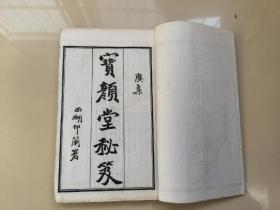 廣集
寶顏堂秘笈
西湖印簡署